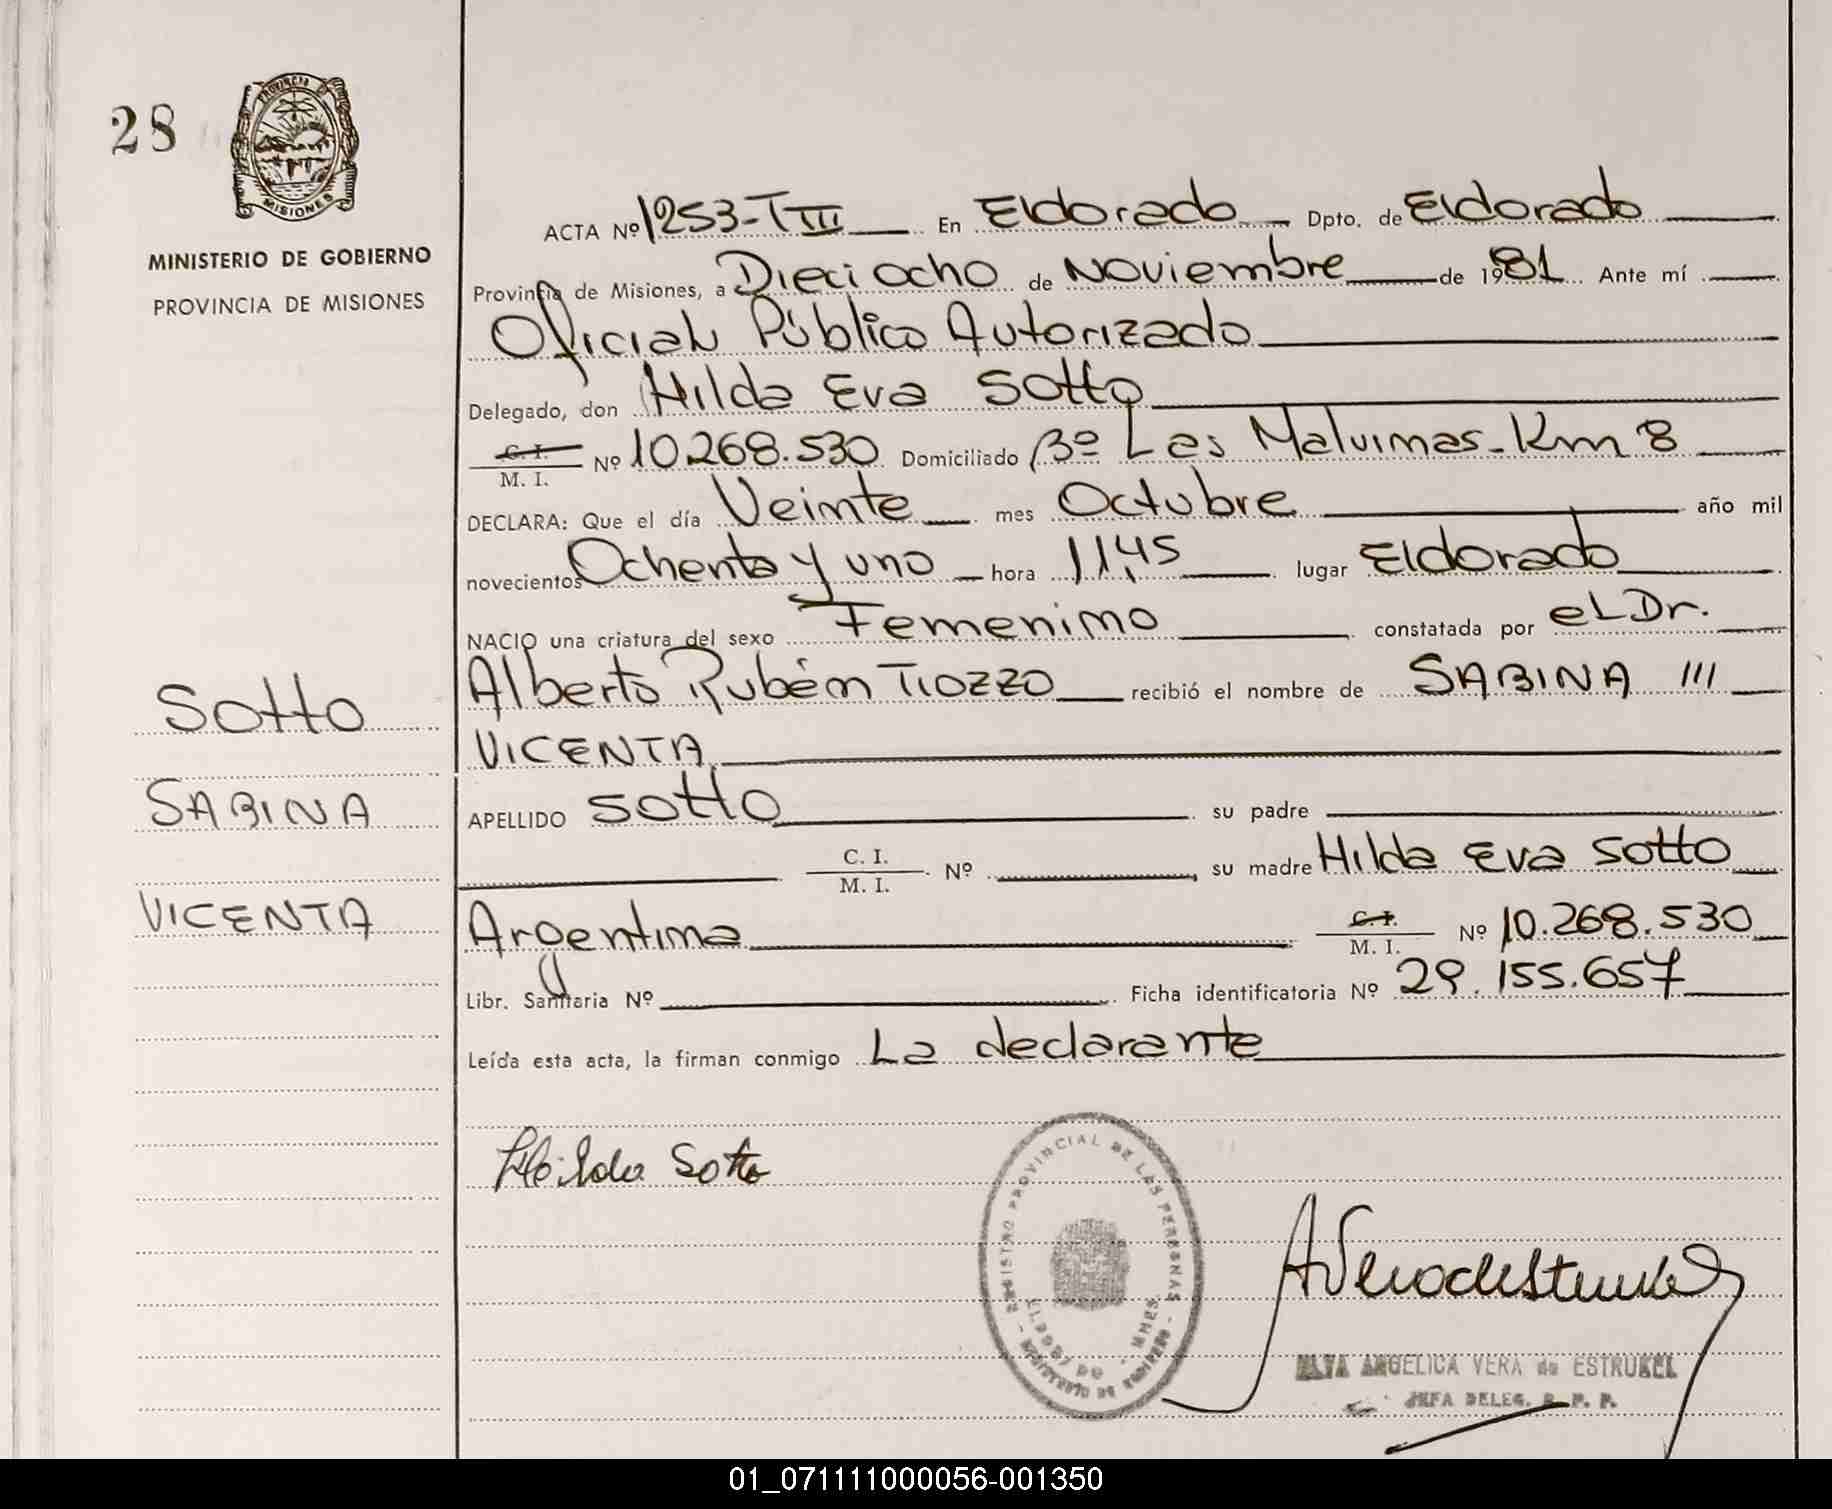 28
PROVINCIA DE
MISIONES
MINISTERIO DE GOBIERNO
PROVINCIA DE MISIONES
Sotto
SABINA
VICENTA
ACTA Nº 1253-T III En Eldorado Dpto. de Eldorado
Provincia de Misiones, a Dieciocho de Noviembre de 1981 Ante mí
Oficial Público Autorizado
Delegado, don Hilda Eva Sotto
C. I.
M. I. Nº 10.268.530 Domiciliado Bº Las Malvinas-Km 8
DECLARA: Que el día Veinte mes Octubre año mil
novecientos Ochenta y uno hora 11,45 lugar Eldorado
NACIO una criatura del sexo Femenino constatada por el Dr.
Alberto Rubén Tiozzo recibió el nombre de SABINA
VICENTA
APELLIDO Sotto su padre
C. I.
M. I. Nº su madre Hilda Eva Sotto
Argentina C. I.
M. I. Nº 10.268.530
Libr. Sanitaria Nº Ficha identificatoria Nº 29.155.657
Leída esta acta, la firman conmigo La declarante
Hilda Sotto
REGISTRO PROVINCIAL DE LAS PERSONAS
MINISTERIO DE GOBIERNO
ANGELICA VERA de ESTRUKEL
JEFA DELEG. R. P. P.
01_071111000056-001350